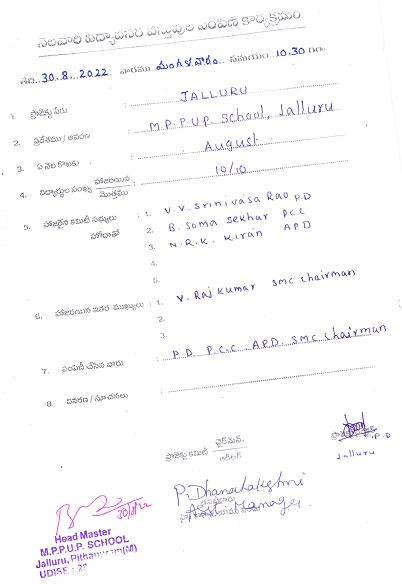 నెలవారి విద్యావసర వస్తువుల పంపిణీ కార్యక్రమం
తేది..30.8..2022. వారము..మంగళవారం.. సమయం. 10.30 గం.
1. ప్రాజెక్టు పేరు : JALLURU
2. ప్రదేశము / ఆవరణ : M.P.P.UP. School, Jalluru
3. ఏ నెల కొఱకు : August
4. విద్యార్థుల సంఖ్య హాజరయిన / మొత్తము : 10/10
5. హాజరైన కమిటీ సభ్యులు : 1. V. V. Srinivasa Rao P.D
హోదాతో 2. B. Soma Sekhar PCC
3. N.R.K. Kiran APD
4.
5.
6. హాజరయిన ఇతర ముఖ్యులు : 1. V. Raj Kumar SMC Chairman
2.
3.
7. పంపిణీ చేసిన వారు : P.D. P.C.C A.P.D. SMC Chairman
8. వివరణ / సూచనలు :
ప్రాజెక్టు కమిటీ చైర్‌మెన్. / ఆడిటర్
P.D
Jalluru
P. Dhanalakshmi
Asst Manager
30/8/22
Head Master
M.P.P.U.P. SCHOOL
Jalluru, Pithapuram(M)
UDISE : 28